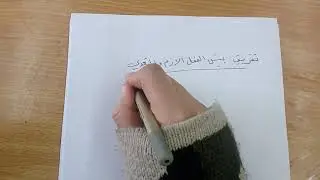 تفريق بين الفعل الازم و المتعدي